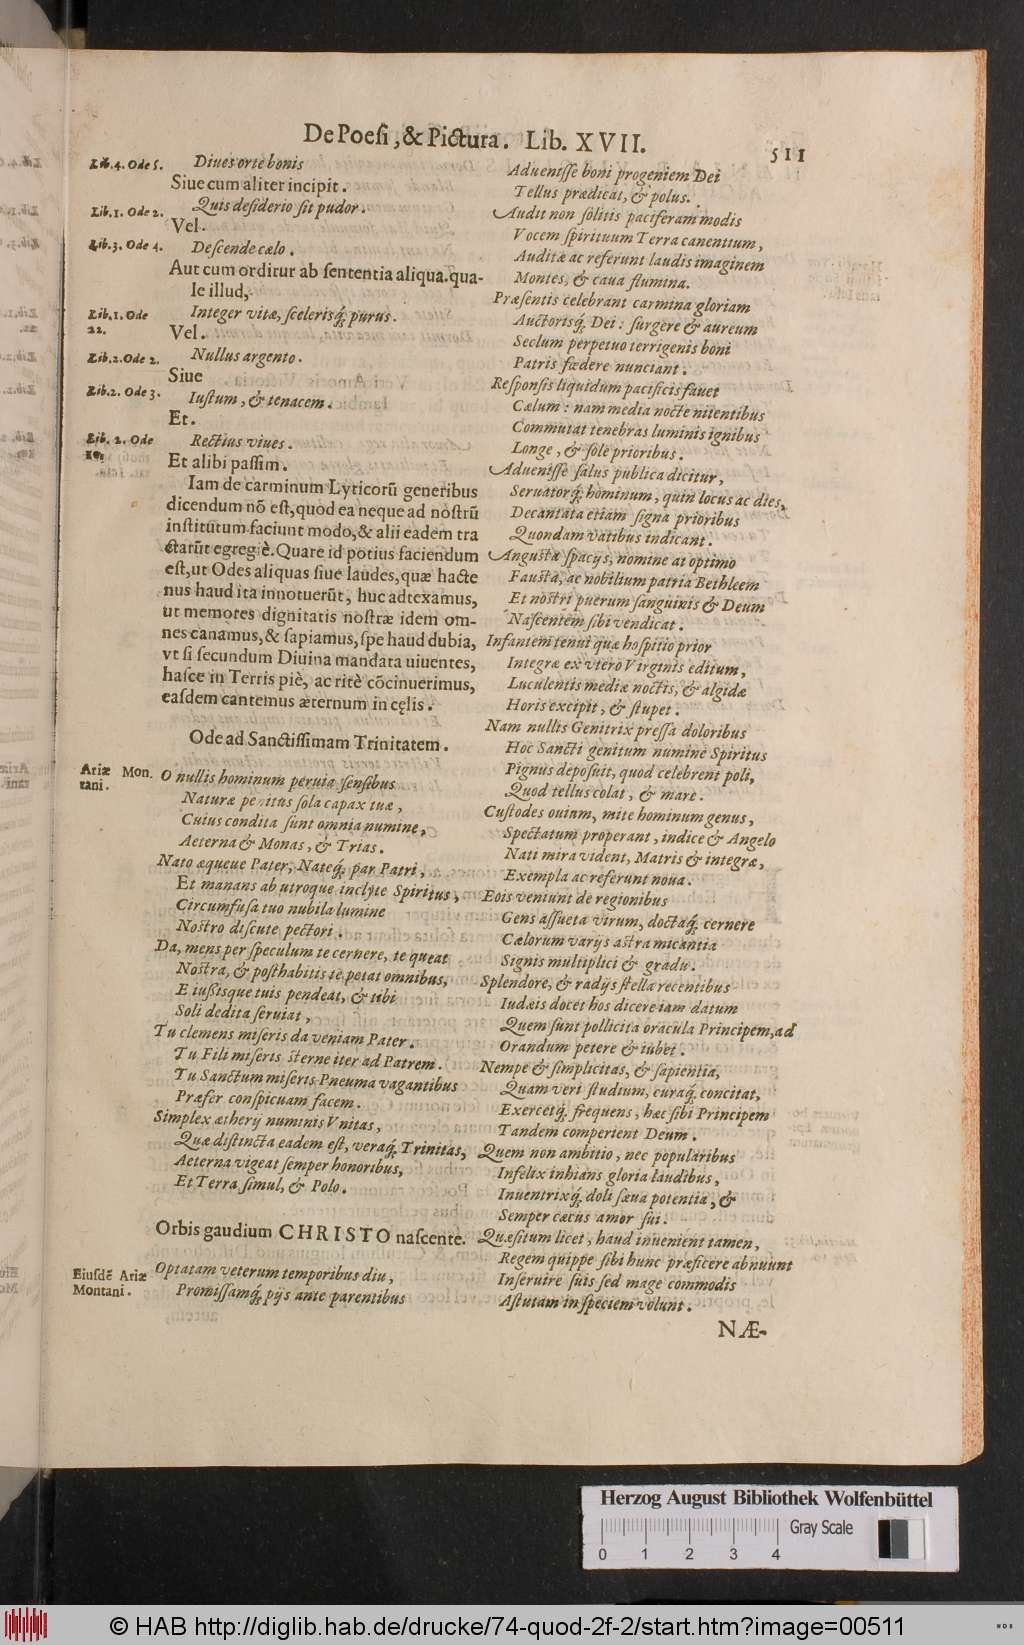 De Poesi, & Pictura. Lib. XVII.
511
Lib. 4. Ode 5.
Diues orte bonis
Siue cum aliter incipit.
Lib. 1. Ode 2.
Quis desiderio sit pudor.
Vel.
Lib. 3. Ode 4.
Descende cælo.
Aut cum orditur ab sententia aliqua. qua-
le illud,
Lib. 1. Ode
22.
Integer vitæ, scelerisq́; purus.
Vel.
Lib. 2. Ode 2.
Nullus argento.
Siue
Lib. 2. Ode 3.
Iustum, & tenacem.
Et.
Lib. 2. Ode
Rectius viues.
Et alibi passim.
Iam de carminum Lyricorũ generibus
dicendum nõ est, quòd ea neque ad nostrũ
institutum faciunt modo, & alii eadem tra
ctarũt egregiè. Quare id potius faciendum
est, ut Odes aliquas siue laudes, quæ hacte
nus haud ita innotuerũt, huc adtexamus,
ut memores dignitatis nostræ idem om-
nes canamus, & sapiamus, spe haud dubia,
vt si secundum Diuina mandata uiuentes,
hasce in Terris piè, ac ritè cõcinuerimus,
easdem cantemus æternum in cęlis.
Ode ad Sanctissimam Trinitatem.
Ariæ Mon.
tani.
O nullis hominum peruia sensibus
Naturæ penitus sola capax tuæ,
Cuius condita sunt omnia numine,
Aeterna & Monas, & Trias.
Nato æqueue Pater, Nateq́; par Patri,
Et manans ab utroque inclyte Spiritus,
Circumfusa tuo nubila lumine
Nostro discute pectori.
Da, mens per speculum te cernere, te queat
Nostra, & posthabitis te petat omnibus,
E iussisque tuis pendeat, & tibi
Soli dedita seruiat,
Tu clemens miseris da veniam Pater.
Tu Fili miseris sterne iter ad Patrem.
Tu Sanctum miseris Pneuma vagantibus
Præfer conspicuam facem.
Simplex ætherij numinis Vnitas,
Quæ distincta eadem est, veraq́; Trinitas,
Aeterna vigeat semper honoribus,
Et Terra simul, & Polo.
Orbis gaudium CHRISTO nascente.
Eiusdẽ Ariæ
Montani.
Optatam veterum temporibus diu,
Promissamq́; pijs ante parentibus
Aduenisse boni progeniem Dei
Tellus prædicat, & polus.
Audit non solitis paciferam modis
Vocem spirituum Terra canentium,
Auditæ ac referunt laudis imaginem
Montes, & caua flumina.
Præsentis celebrant carmina gloriam
Auctorisq́; Dei: surgere & aureum
Seclum perpetuo terrigenis boni
Patris fœdere nunciant.
Responsis liquidum pacificis fauet
Cælum: nam media nocte nitentibus
Commutat tenebras luminis ignibus
Longe, & sole prioribus.
Aduenisse salus publica dicitur,
Seruatorq́; hominum, quin locus ac dies,
Decantata etiam signa prioribus
Quondam vatibus indicant.
Angusta spacijs, nomine at optimo
Fausta, ac nobilium patria Bethleem
Et nostri puerum sanguinis & Deum
Nascentem sibi vendicat.
Infantem tenui quæ hospitio prior
Integræ ex vtero Virginis editum,
Luculentis mediæ noctis, & algidæ
Horis excipit, & stupet.
Nam nullis Genitrix pressa doloribus
Hoc Sancti genitum numine Spiritus
Pignus deposuit, quod celebrent poli,
Quod tellus colat, & mare.
Custodes ouium, mite hominum genus,
Spectatum properant, indice & Angelo
Nati mira vident, Matris & integræ,
Exempla ac referunt noua.
Eois veniunt de regionibus
Gens assueta virum, doctaq́; cernere
Cælorum varijs astra micantia
Signis multiplici & gradu.
Splendore, & radijs stella recentibus
Iudæis docet hos dicere iam datum
Quem sunt pollicita oracula Principem, ad
Orandum petere & iubet.
Nempe & simplicitas, & sapientia,
Quam veri studium, curaq́; concitat,
Exercetq́; frequens, hæc sibi Principem
Tandem comperient Deum.
Quem non ambitio, nec popularibus
Infelix inhians gloria laudibus,
Inuentrixq́; doli sæua potentia, &
Semper cæcus amor sui.
Quæsitum licet, haud inuenient tamen,
Regem quippe sibi hunc præficere abnuunt
Inseruire suis sed mage commodis
Astutam in speciem volunt.
NÆ-
Herzog August Bibliothek Wolfenbüttel
Gray Scale
0 1 2 3 4
© HAB http://diglib.hab.de/drucke/74-quod-2f-2/start.htm?image=00511